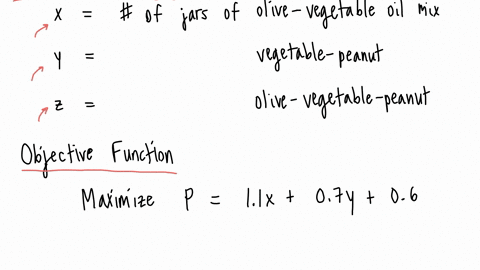 x = # of jars of olive-vegetable oil mix
y = vegetable-peanut
z = olive-vegetable-peanut
Objective Function
Maximize P = 1.1x + 0.7y + 0.6